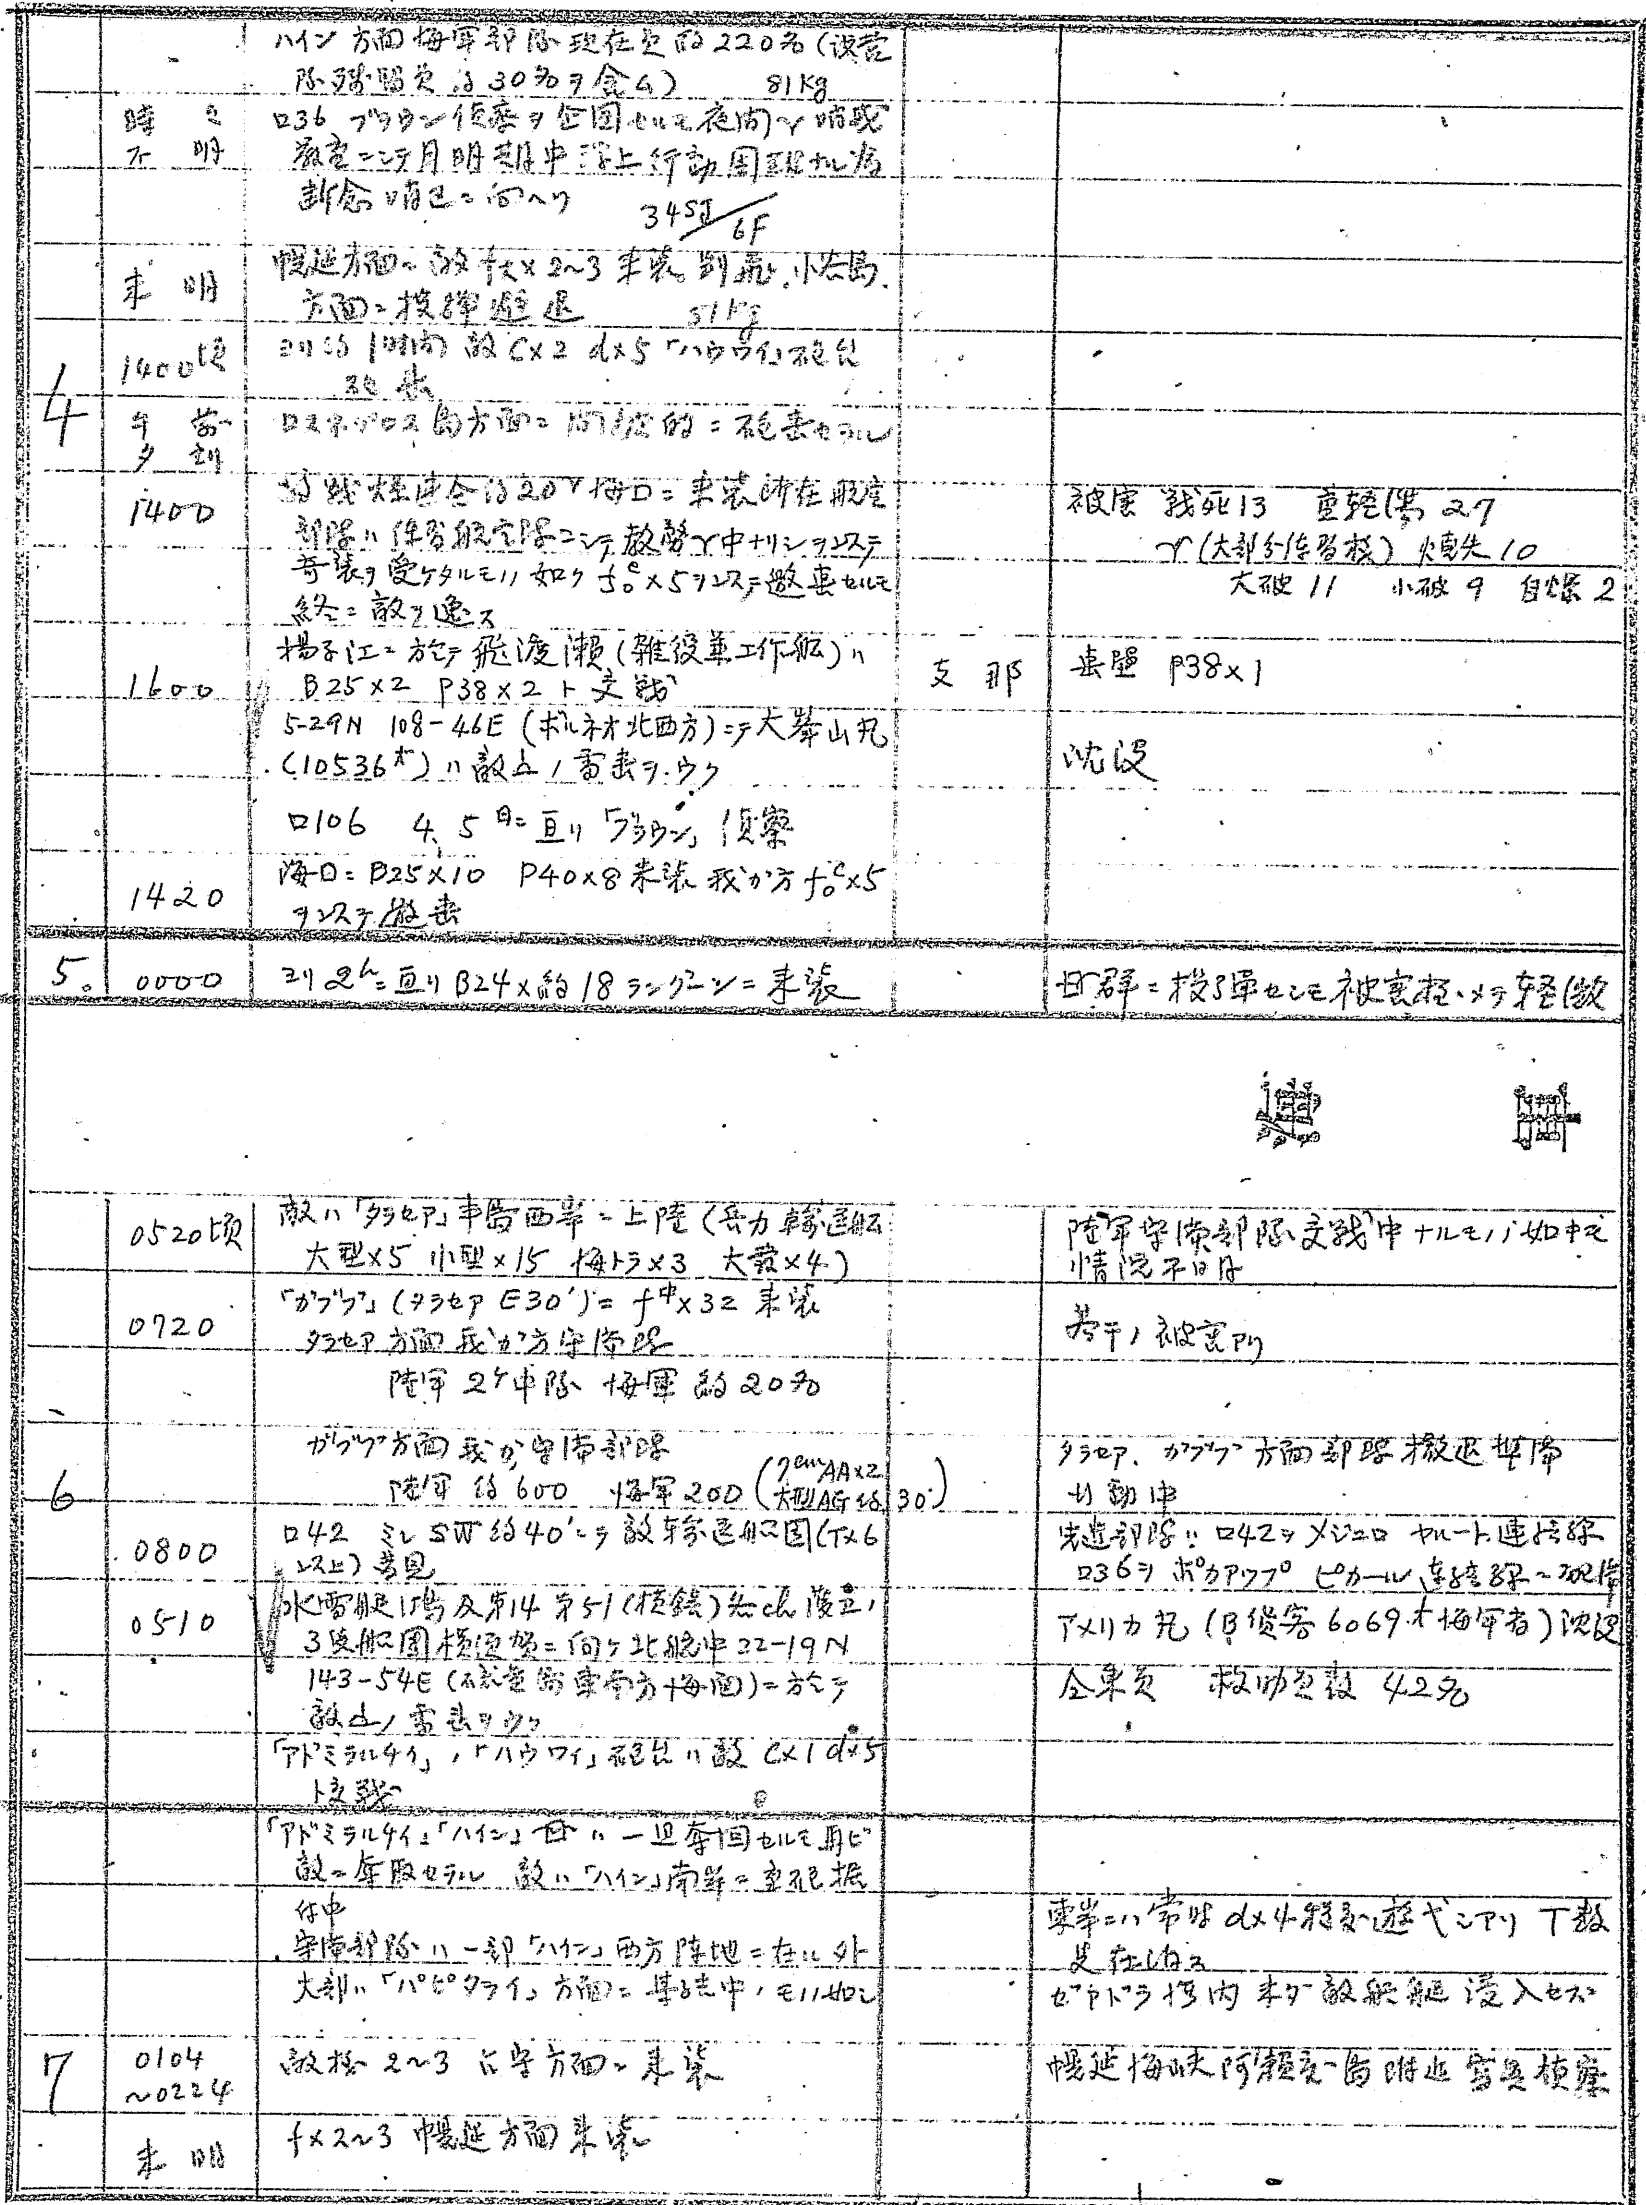 ハイン方面海軍部隊現在員約220名(設営
隊残留員約30名ヲ含ム) 81Kg
時之
不明
ロ36 ブラウン偵察ヲ企図セルモ夜間γ哨戒
厳重ニシテ月明期中浮上行動困難ナル為
断念 哨区ニ向ヘリ 34SJ/6F
未明
幌延方面ニ敵 ×2~3来襲 別飛、小笠島、
方面ニ投弾避退 51Kg
4
1400頃
ヨリ約1時間 敵C×2 d×5「ハウワイ」砲台
午前
夕刻
ロスネグロス島方面ニ間歇的ニ砲撃セラル
1400
戦爆連合約20γ海口ニ来襲 所在航空
部隊ハ練習航空隊ニシテ教務γ中ナリシヲ以テ
奇襲ヲ受ケタルモノノ如ク foc×5ヲ以テ邀撃セルモ
終ニ敵ヲ逸ス
被害 戦死13 重軽傷27
γ(大部分練習機) 焼失10
大破11 小破9 自爆2
1600
揚子江ニ於テ飛渡瀬(雑役兼工作船)ハ
B25×2 P38×2ト交戦
支那
撃墜 P38×1
5-29N 108-46E (ボルネオ北西方)ニテ大峯山丸
(10536屯)ハ敵 ノ雷撃ヲウク
沈没
ロ106 4、5日ニ亘リ「ブラウン」偵察
1420
海口ニB25×10 P40×8来襲 我ガ方foc×5
ヲ以テ邀撃
5.
0000
ヨリ2hニ亘リB24×約18ラングーンニ来襲
群ニ投弾セルモ被害極メテ軽微
6
0520頃
敵ハ「タラセア」半島西岸ニ上陸(兵力輸送船
大型×5 小型×15 海トラ×3 大発×4)
陸軍守備部隊交戦中ナルモノノ如キモ
情況不明
0720
「ガブブ」(タラセアE30′)ニf中×32来襲
若干ノ被害アリ
タラセア方面我ガ方守備隊
陸軍2ケ中隊 海軍約20名
ガブブ方面我ガ守備部隊
陸軍約600 海軍200(7cmAA×2
大型AG約30)
タラセア、ガブブ方面部隊撤退準備
行動中
0800
ロ42 ミレSW約40′ニテ敵輸送船団(T×6
以上)発見
先遣部隊ハロ42ヲメジュロ ヤルート連結線
ロ36ヲポカアップ ピカール連結線ニ配備
0510
水雷艇鴻及第14第51(横鎮)各ch護送ノ
3隻船団横須賀ニ向ケ北航中22-19N
143-54E(硫黄島東南方海面)ニ於テ
敵 ノ雷撃ヲウク
アメリカ丸(B貨客6069屯海軍省)沈没
全乗員 救助員数42名
「アドミラルテイ」、「ハウワイ」砲台ハ敵C×1 d×5
ト交戦
7
「アドミラルテイ」「ハイン」 ハ一旦奪回セルモ再ビ
敵ニ奪取セラル 敵ハ「ハイン」南岸ニ重砲据
付中
守備部隊ハ一部「ハイン」西方陣地ニ在ル外
大部ハ「パピタライ」方面ニ集結中ノモノノ如シ
東岸ニハ常時d×4程度遊弋シアリ T数
隻在泊ス
ゼアドラ湾内未ダ敵艦艇侵入セズ
0104
~0224
敵機2~3占守方面ニ来襲
幌延海峡阿頼度島附近写真偵察
未明
f×2~3幌延方面来襲